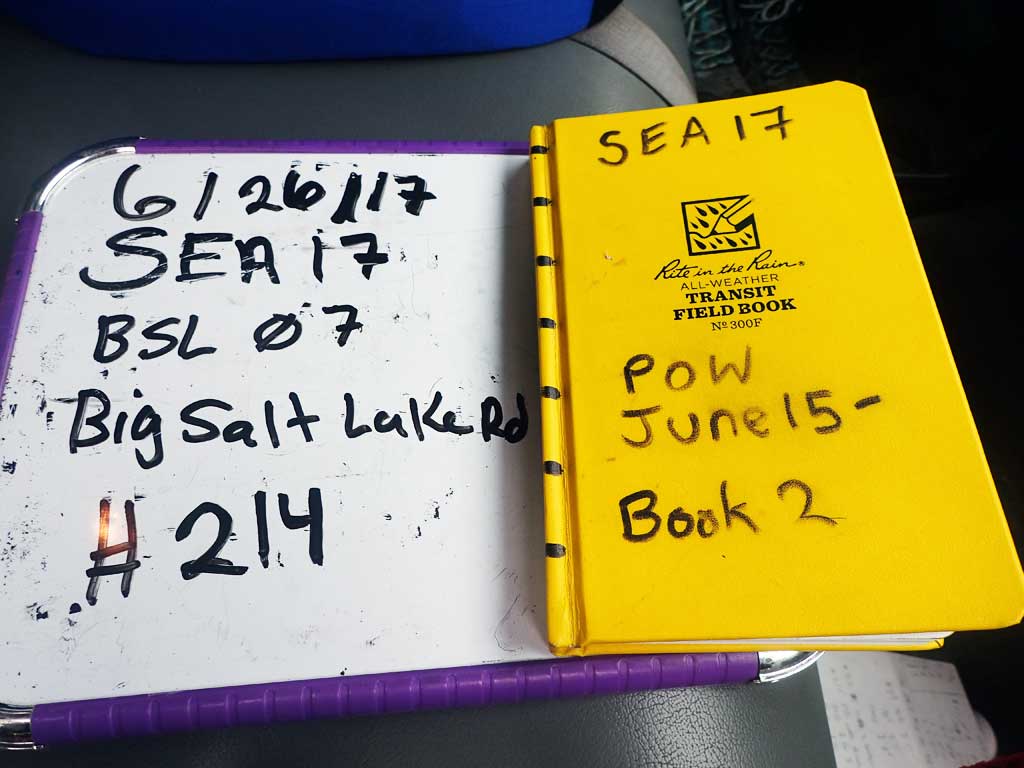 6/26/17
SEA 17
BSL Ø7
Big Salt Lake Rd
# 214
SEA 17
Rite in the Rain®
ALL-WEATHER
TRANSIT
FIELD BOOK
Nº 300F
POW
June 15-
Book 2